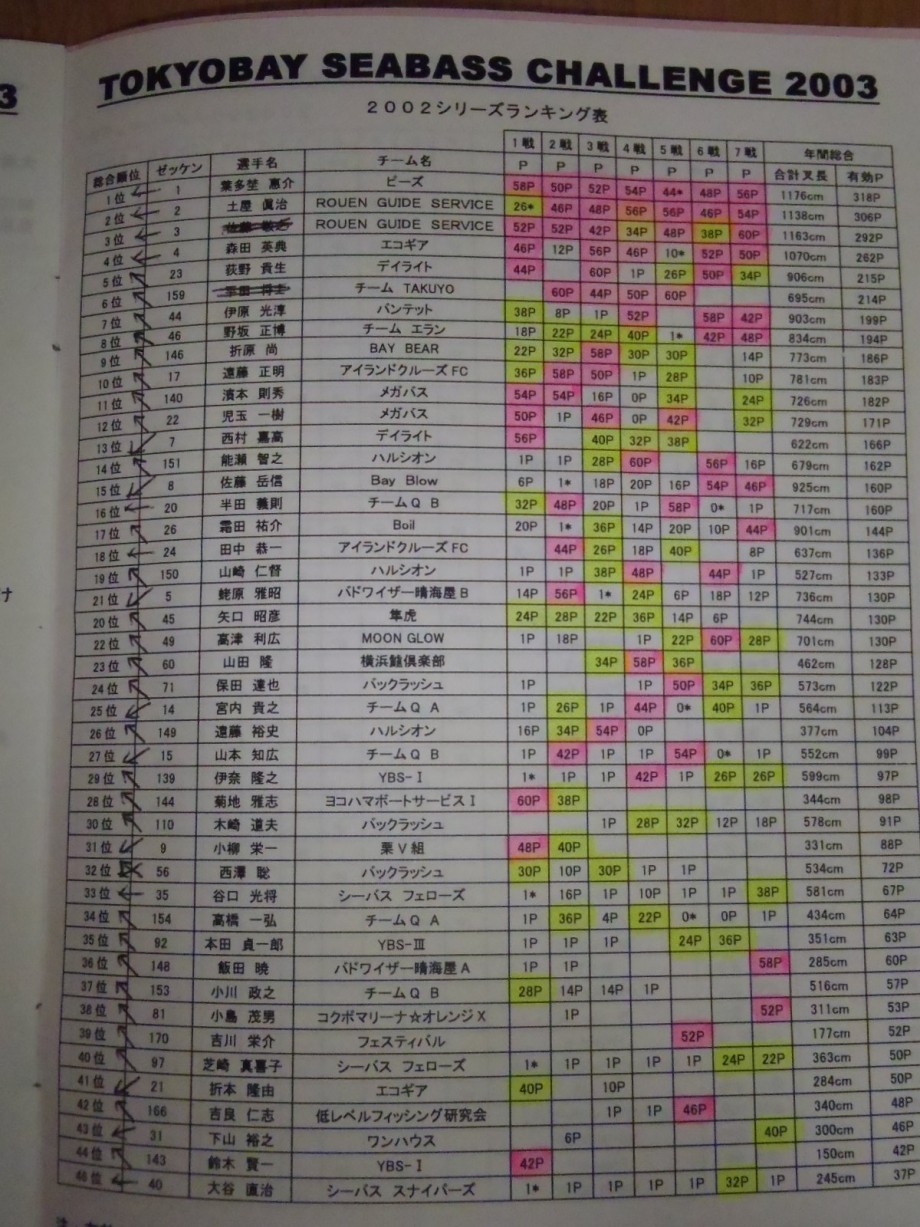 3
TOKYOBAY SEABASS CHALLENGE 2003
2002シリーズランキング表
1戦 2戦 3戦 4戦 5戦 6戦 7戦 年間総合
総合順位 ゼッケン 選手名 チーム名 P P P P P P P 合計叉長 有効P
1位 1 葉多埜 惠介 ビーズ 58P 50P 52P 54P 44* 48P 56P 1176cm 318P
2位 2 土屋 眞治 ROUEN GUIDE SERVICE 26* 46P 48P 56P 56P 46P 54P 1138cm 306P
3位 3 ROUEN GUIDE SERVICE 52P 52P 42P 34P 48P 38P 60P 1163cm 292P
4位 4 森田 英典 エコギア 46P 12P 56P 46P 10* 52P 50P 1070cm 262P
5位 23 荻野 貴生 デイライト 44P 60P 1P 26P 50P 34P 906cm 215P
6位 159 チーム TAKUYO 60P 44P 50P 60P 695cm 214P
7位 44 伊原 光淳 バンテット 38P 8P 1P 52P 58P 42P 903cm 199P
8位 46 野坂 正博 チーム エラン 18P 22P 24P 40P 1* 42P 48P 834cm 194P
9位 146 折原 尚 BAY BEAR 22P 32P 58P 30P 30P 14P 773cm 186P
10位 17 遠藤 正明 アイランドクルーズFC 36P 58P 50P 1P 28P 10P 781cm 183P
11位 140 濱本 則秀 メガバス 54P 54P 16P 0P 34P 24P 726cm 182P
12位 22 児玉 一樹 メガバス 50P 1P 46P 0P 42P 32P 729cm 171P
13位 7 西村 嘉高 デイライト 56P 40P 32P 38P 622cm 166P
14位 151 能瀬 智之 ハルシオン 1P 1P 28P 60P 56P 16P 679cm 162P
15位 8 佐藤 岳信 Bay Blow 6P 1* 18P 20P 16P 54P 46P 925cm 160P
16位 20 半田 義則 チームQ B 32P 48P 20P 1P 58P 0* 1P 717cm 160P
17位 26 霜田 祐介 Boil 20P 1* 36P 14P 20P 10P 44P 901cm 144P
18位 24 田中 恭一 アイランドクルーズFC 44P 26P 18P 40P 8P 637cm 136P
19位 150 山崎 仁督 ハルシオン 1P 1P 38P 48P 44P 1P 527cm 133P
21位 5 鮱原 雅昭 バドワイザー晴海屋B 14P 56P 1* 24P 6P 18P 12P 736cm 130P
20位 45 矢口 昭彦 隼虎 24P 28P 22P 36P 14P 6P 744cm 130P
22位 49 高津 利広 MOON GLOW 1P 18P 1P 22P 60P 28P 701cm 130P
23位 60 山田 隆 横浜鱸倶楽部 34P 58P 36P 462cm 128P
24位 71 保田 達也 バックラッシュ 1P 1P 50P 34P 36P 573cm 122P
25位 14 宮内 貴之 チームQ A 1P 26P 1P 44P 0* 40P 1P 564cm 113P
26位 149 遠藤 裕史 ハルシオン 16P 34P 54P 0P 377cm 104P
27位 15 山本 知広 チームQ B 1P 42P 1P 1P 54P 0* 1P 552cm 99P
29位 139 伊奈 隆之 YBS-Ⅰ 1* 1P 1P 42P 1P 26P 26P 599cm 97P
28位 144 菊地 雅志 ヨコハマボートサービスⅠ 60P 38P 344cm 98P
30位 110 木崎 道夫 バックラッシュ 1P 28P 32P 12P 18P 578cm 91P
31位 9 小柳 栄一 栗V組 48P 40P 331cm 88P
32位 56 西澤 聡 バックラッシュ 30P 10P 30P 1P 1P 534cm 72P
33位 35 谷口 光将 シーバス フェローズ 1* 16P 1P 10P 1P 1P 38P 581cm 67P
34位 154 高橋 一弘 チームQ A 1P 36P 4P 22P 0* 0P 1P 434cm 64P
35位 92 本田 貞一郎 YBS-Ⅲ 1P 1P 1P 24P 36P 351cm 63P
36位 148 飯田 暁 バドワイザー晴海屋A 1P 1P 58P 285cm 60P
37位 153 小川 政之 チームQ B 28P 14P 14P 1P 516cm 57P
38位 81 小島 茂男 コクボマリーナ☆オレンジX 1P 52P 311cm 53P
39位 170 吉川 栄介 フェスティバル 52P 177cm 52P
40位 97 芝崎 真喜子 シーバス フェローズ 1* 1P 1P 1P 1P 24P 22P 363cm 50P
41位 21 折本 隆由 エコギア 40P 10P 284cm 50P
42位 166 吉良 仁志 低レベルフィッシング研究会 1P 1P 46P 340cm 48P
43位 31 下山 裕之 ワンハウス 6P 40P 300cm 46P
44位 143 鈴木 賢一 YBS-Ⅰ 42P 150cm 42P
40 大谷 直治 シーバス スナイパーズ 1* 1P 1P 1P 1P 32P 1P 245cm 37P
け